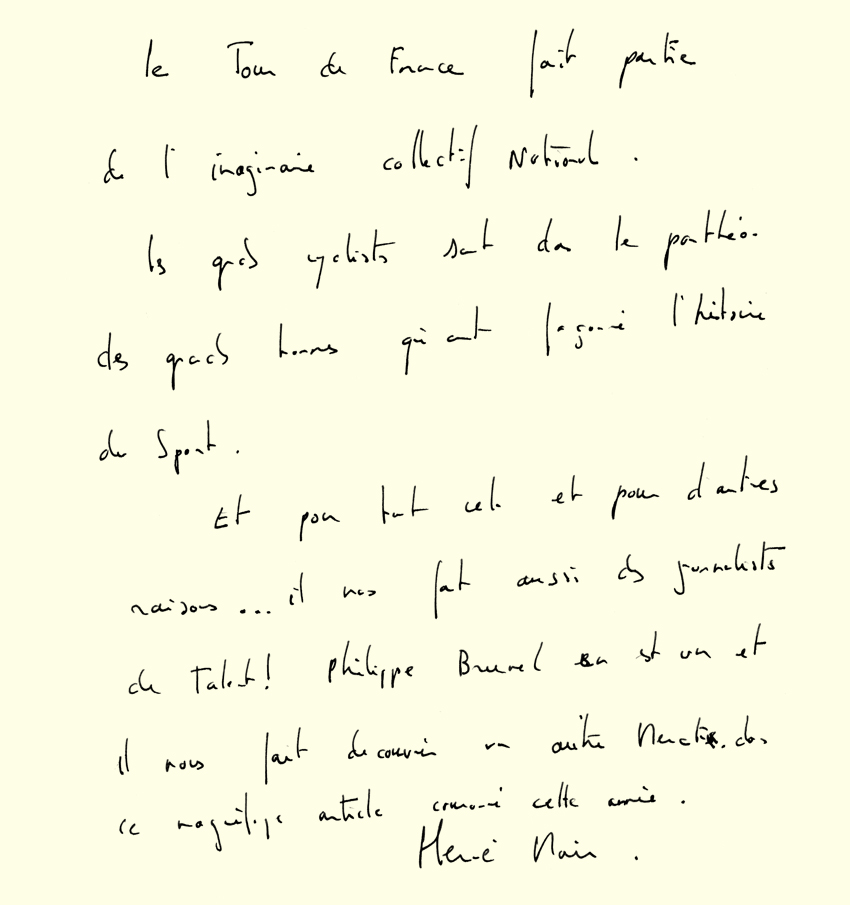 le Tour de France fait partie
de l'imaginaire collectif National.
les grands cyclistes sont dans le panthéon
des grands hommes qui ont façonné l'histoire
du Sport.
Et pour tout cela et pour d'autres
raisons... il nous faut aussi des journalistes
de Talent! Philippe Brunel en est un et
il nous fait découvrir un autre dans
ce magnifique article couronné cette année.
Hervé